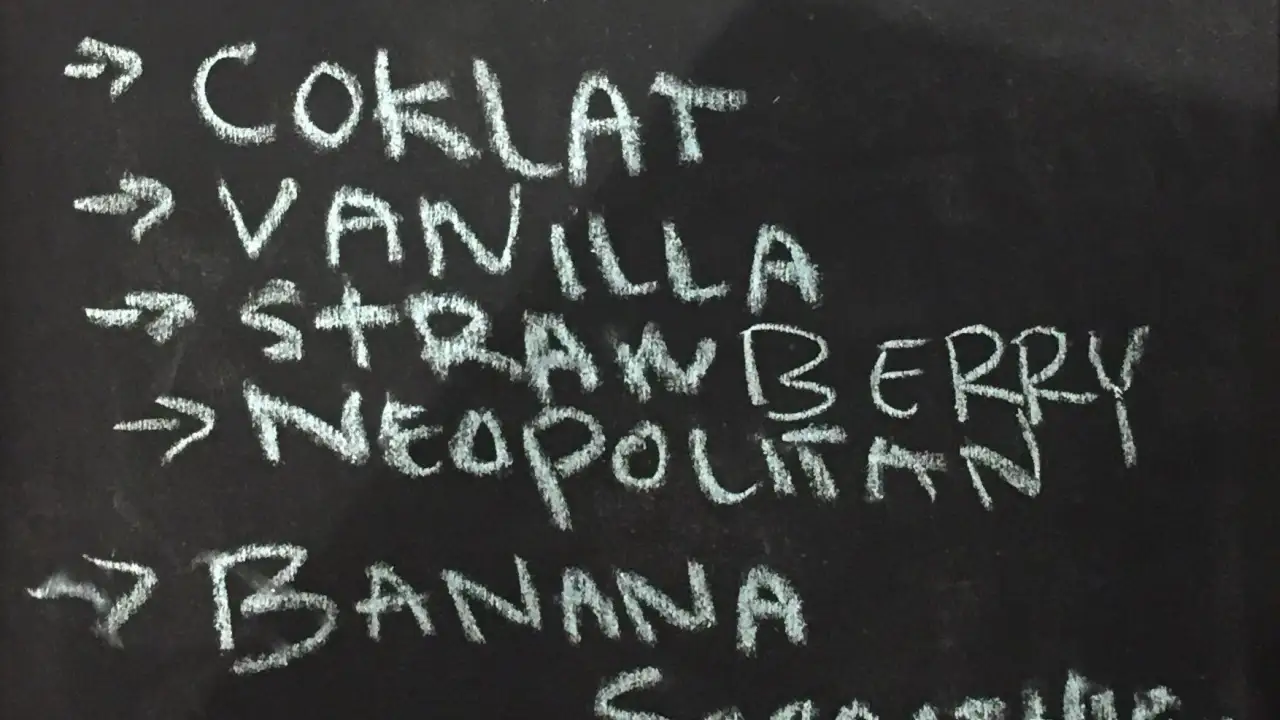 → COKLAT
→ VANILLA
→ STRAWBERRY
→ NEOPOLITAN
→ BANANA